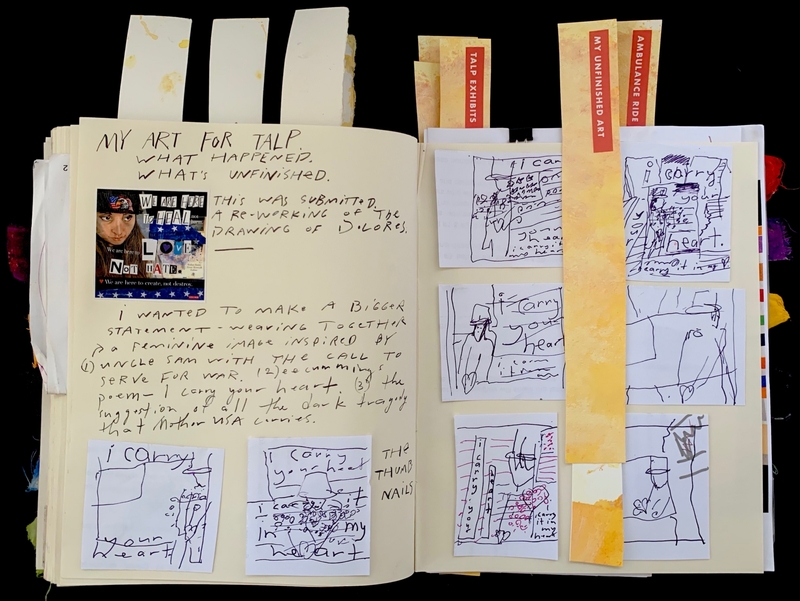 TALP EXHIBITS
MY UNFINISHED ART
AMBULANCE RIDE
MY ART FOR TALP
WHAT HAPPENED.
WHAT'S UNFINISHED.
WE ARE HERE
to HEAL
We are here to
LOVE
NOT HATE.
We are here to create, not destroy.
THIS WAS SUBMITTED.
A RE-WORKING OF THE
DRAWING OF DOLORES.
i WANTED TO MAKE A BIGGER
STATEMENT - WEAVING TOGETHER
a FEMININE IMAGE INSPIRED BY
(1) UNCLE SAM WITH THE CALL TO
SERVE FOR WAR. (2) ee cummings
poem - i carry your heart. (3) the
suggestion of all the dark tragedy
that Mother USA carries.
i carry
your
heart
i carry
your heart
i ca it
in my
heart
THE
THUMB
NAILS
i carry
your
heart
i carry
your
heart.
i carry
your
heart
i carry you
carry
it in
my
heart